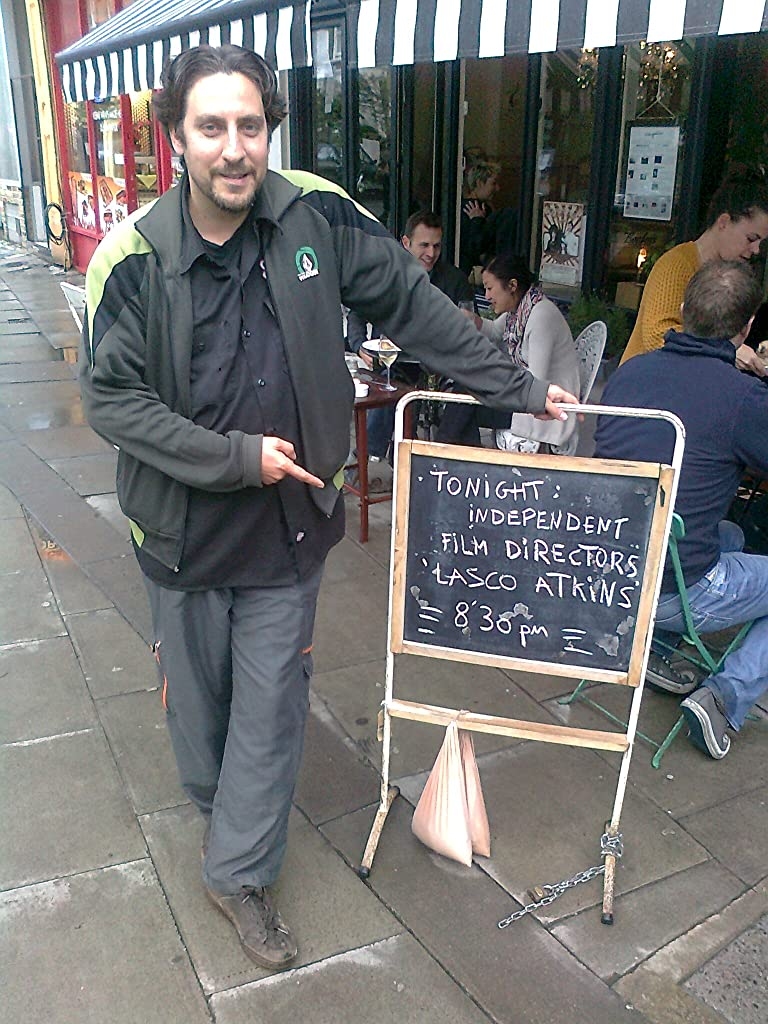 TONIGHT:
INDEPENDENT
FILM DIRECTORS
LASCO ATKINS
8'30 pm